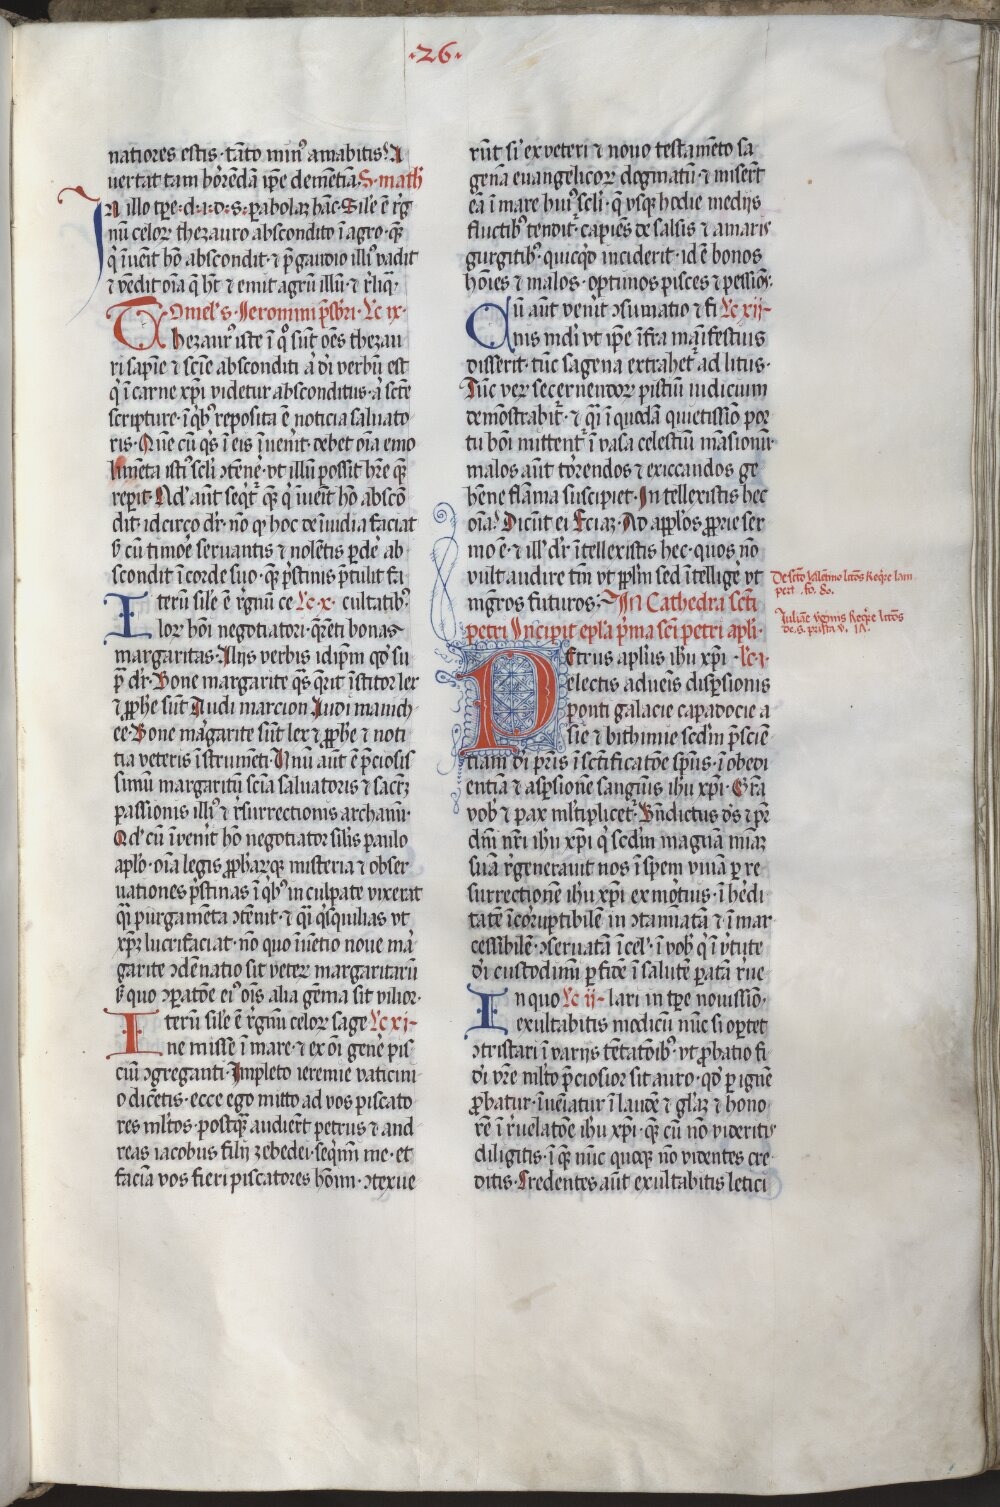 ·26·
natiores estis· tāto min⁹ amabitis? A
uertat tam horēdā ip̄e demētia. S. math̄
IN illo tp̄e· d· i· d· s· p̄abolaꝫ hāc· Sile ē r̄g
nū celoꝝ thezauro abscondito ī agro· qꝫ
q̄ īuēit hō abscondit· ⁊ p̄ gaudio illi⁹ uadit
⁊ vēdit oīa q̄ ht̄ ⁊ emit agrū illū· ⁊ r̄liq̄·
Omel's· Jeronimi p̄sbr̄i· Lc̄ ix·
Thezaur⁹ iste ī q̊ sūt oēs thezau
ri sapīe ⁊ sciē absconditi a· dī verbū est
q̄ ī carne xp̄i videtur absconditus· a· sct̄e
scripture· ī qb⁹ reposita ē noticia saluato
ris· Quē cū q̄s ī eis īuenit· debet oīa emo
lumēta isti⁹ scl̄i ꝯtēne· vt illū possit hr̄e quē
rep̄it· Qd' aūt seqt̄ quē q̄ īuēit hō abscō
dit· idcirco dr̄· nō qꝫ hoc de īuidia faciat
s̄ cū timōe seruantis ⁊ nolētis p̄dē ab
scondit ī corde suo· quē p̄stinis p̄tulit fa
Iterū sile ē r̄gnū ce Lc̄· x· cultatib⁹·
loꝝ hoī negotiatori· q̄rēti bonas
margaritas· Alijs verbis idip̄m qd' su
p̄ dr̄· Bone margarite q̄s q̄rit īstitor lex
⁊ ꝓphe sūt Audi marcion Audi manich
ee· Bone margarite sūt lex ⁊ ꝓphe ⁊ noti
tia veteris īstrumēti· Unū aūt ē p̄ciosis
simū margaritū scīa saluatoris ⁊ sacrꝫ
passionis illi⁹ ⁊ r̄surrectionis archanū·
Qd' cū īvenit hō negotiator silis paulo
aplo· oīa legis ꝓpharꝫqꝫ misteria ⁊ obser
uationes p̄stinas ī qb⁹ inculpate vixerat
qī purgamēta ꝯtēnit· ⁊ qī qisquilias vt
xp̄ꝫ lucrifaciat· nō quo īuētio noue mar
garite ꝯdēnatio sit veterꝫ margaritarū
s̄ quo ꝯp̄atōe ei⁹ oīs alia gēma sit vilior·
Iterū sile ē r̄gnū celoꝝ sage Lc̄ xi·
ne misse ī mare· ⁊ ex oī genē pis
ciū ꝯgreganti· Impleto ieremie vaticini
o dicētis· ecce ego mitto ad vos piscato
res mltos· postquā audierūt petrus ⁊ and
reas iacobus filij zebedei· seq̄mī me· et
faciā vos fieri piscatores hoīm· ꝯtexue
rūt si' ex veteri ⁊ nouo testamēto sa
genā euangelicoꝝ dogmatū· ⁊ miserūt
eā ī mare hui⁹ scl̄i· q̄ vsqꝫ hodie medijs
fluctib⁹ tendit· capiēs de salsis ⁊ amaris
gurgitib⁹· quicq̄d inciderit· id ē bonos
hoīes ⁊ malos· optimos pisces ⁊ pessios·
Cū aūt venīt ꝯsumatio ⁊ fi Lc̄ xij·
nis mdi' vt ip̄e īfra māifestius
disserit· tūc sagena extrahet' ad litus·
Tūc veꝝ secernendoꝝ pistiū iudicium
demōstrabit̄· ⁊ qī ī quedā quietissīo por
tu boni mittent' ī vasa celestiū māsionū·
malos aūt torendos ⁊ exiccandos ge
hēne flāma suscipiet· Intellexistis hec
oīa? Dicūt ei Eciaꝫ· Ad apl̄os ꝓprie ser
mo ē· ⁊ ill' dr̄ ītellexistis hec· quos nō
vult audire tm̄ vt ppl̄m sed ītelligē vt
mgr̄os futuros: In Cathedra scti
petri Incipit ep̄la p̄ma sc̄i petri apl̄i·
PEtrus apl̄us ihū xp̄i· Lc̄· i·
electis aduēis disp̄sionis
ponti galacie capadocie a
sie ⁊ bithinie secd̄m p̄sciē
tiam dī pr̄is ī sctificatōe sp̄us· ī obedi
entiā ⁊ asp̄sionē sanguīs ihū xp̄i· Gr̄a
vob' ⁊ pax mltiplicet'· Bn̄dictus ds̄ ⁊ pr̄
dn̄i nr̄i ihū xp̄i q̄ secd̄m magnā miaꝫ
suā r̄generauit nos ī spem viuā p̄ re
surrectionē ihū xp̄i ex mortuis· ī hēdi
tatē īcoruptibilē in ꝯtaīatā ⁊ ī mar
cessibilē· ꝯseruatā ī cel'· ī vob' q̄ ī v̄tute
dī custodimī p̄ fidē ī salutē p̄atā reue
In quo Lc̄ ij· lari in tp̄e nouissīo·
exultabitis modicū nūc si op̄tet
ꝯtristari ī varijs tētatōib⁹· vt ꝓbatio fi
dī vr̄e mlto p̄ciosior sit auro· qd' p̄ ignē
ꝓbatur· īuēiatur ī laudē ⁊ gl'aꝫ ⁊ hono
rē ī r̄uelatōe ihū xp̄i· quē cū nō videritis
diligitis· ī quē nūc quoqꝫ nō videntes cre
ditis· Credentes aūt exultabitis letici
De scto Valētino lctōs Req̄re lam
pert· fo. 80.
Juliāe vginis Req̄re lctōs
de. S. prisca v. 19.